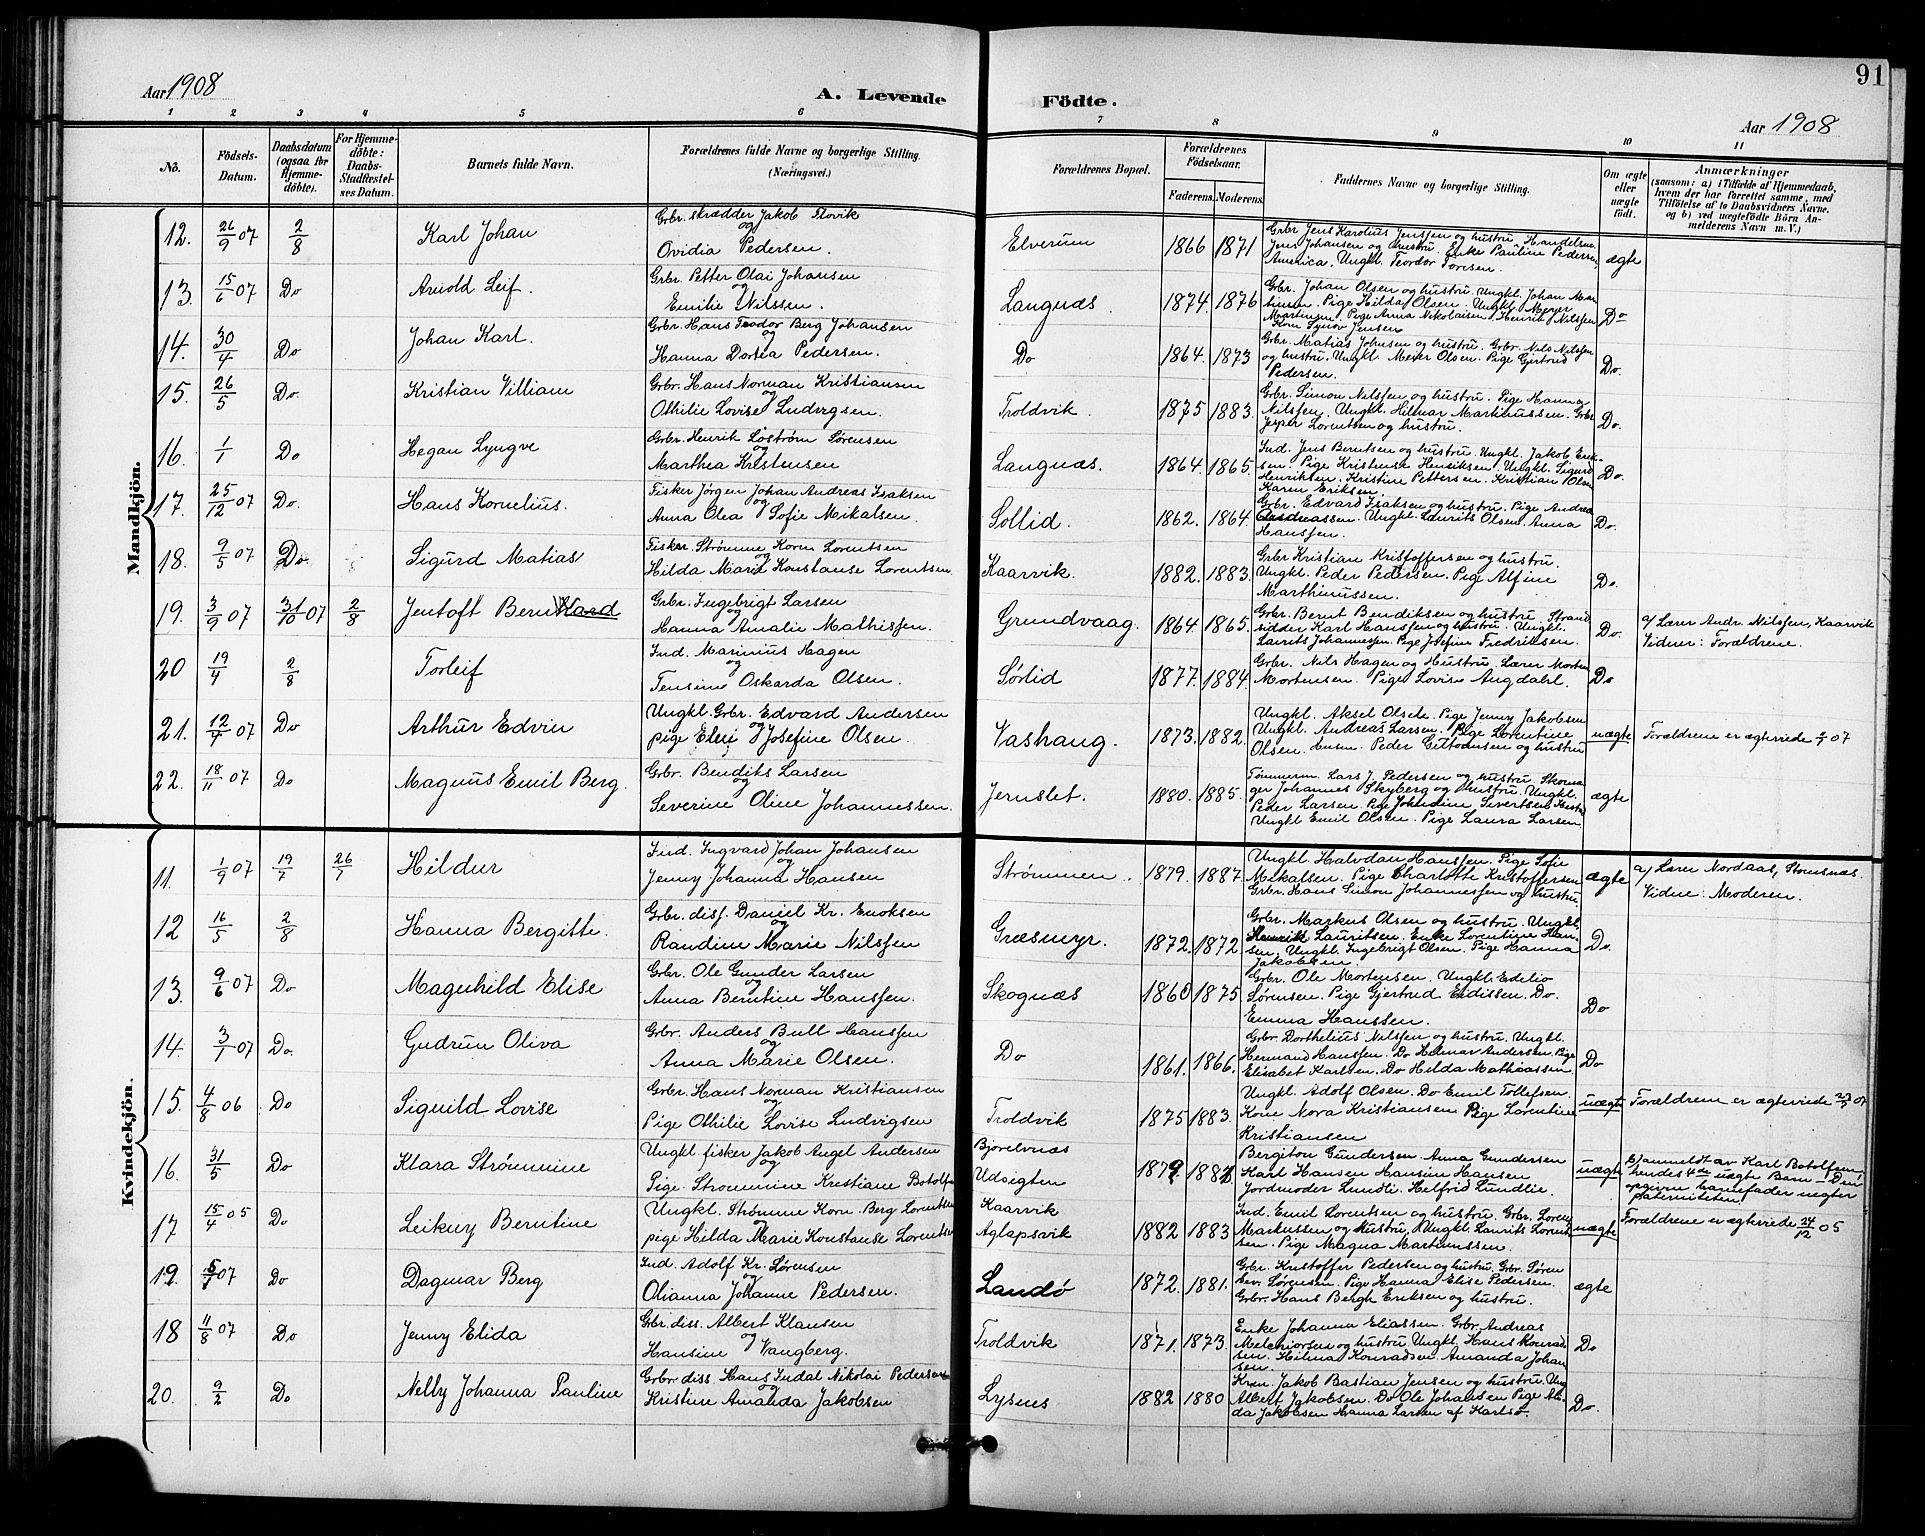 91
Aar 1908
A. Levende Födte.
Aar 1908
1 2 3 4 5 6 7 8 9 10 11
No.
Födsels-Datum.
Daabsdatum (ogsaa for Hjemme-döbte).
For Hjemme-döbte: Daabs-Stadfæstel-ses Datum.
Barnets fulde Navn.
Forældrenes fulde Navne og borgerlige Stilling. (Næringsvei.)
Forældrenes Bopæl.
Forældrenes Födselsaar.
Faderens. Moderens.
Faddernes Navne og borgerlige Stilling.
Om ægte eller uægte födt.
Anmærkninger
(saasom: a) i Tilfælde af Hjemmedaab, hvem der har forrettet samme, med Tilföielse af to Daabsvidners Navne, og b) ved uægtefödte Börn An-melderens Navn m. V.)
Mandkjön.
12. 26/9 07 2/8 Karl Johan Grbr. skrædder Jakob Flovik og Ovidia Pedersen. Elverum 1866 1871 Grbr Jens Karolius Jenssen og hustru Handelsm. Jens Johansen og Hustru Enke Pauline Pedersen America. Ungkl. Teodor Toresen. ægte
13. 15/6 07 Do Arnold Leif. Grbr. Petter Olai Johansen og Emilie Nilssen. Langnæs 1874. 1876 Grbr. Johan Olsen og hustru. Ungkl. Johan Martinsen. Pige Hilda Olsen. Ungkl. Meyer Martinsen. Pige Anna Nikolaisen. Henrik Nilssen Kom Synöv Jensen Do
14. 30/4 Do Johan Karl. Grbr. Hans Teodor Berg Johansen og Hanna Dorsea Pedersen. Do 1864. 1873 Grbr. Matias Johnsen og hustru. Grbr. Nils Nilssen og hustru. Ungkl. Meier Olsen. Pige Gjertrud Pedersen. Do.
15. 26/5 Do. Kristian Villiam Grbr. Hans Norman Kristiansen og Othilie Lovise Ludvigsen. Troldvik. 1875 1883. Grbr. Simon Nilssen og hustru. Pige Hanna Nilssen. Ungkl. Hilmar Martinussen. Grbr Jesper Lorentsen og hustru. Do.
16. 1/1 Do Hegan Lyngve Grbr. Henrik Löström Sörensen og Marthea Kristensen Langnæs. 1864. 1865. Ind. Jens Berntsen og hustru. Ungkl. Jakob Eriksen. Pige Kristense Henriksen. Ungkl. Sigurd Henriksen. Kristine Pettersen. Kristian Olsen Karen Eriksen. Do.
17. 25/12 07 Do. Hans Kornelius. Fisker Jörgen Johan Andreas Isaksen og Anna Olea Sofie Mikalsen. Sollid. 1862. 1864. Grbr. Edvard Isaksen og hustru. Pige Andrea Andreassen. Ungkl. Laurits Olsen. Anna Hanssen. Do.
18. 9/5 07 Do Sigurd Matias Fisker Strömme Korn Lorentsen og Hilda Marie Konstanse Lorentsen. Kaarvik. 1882. 1883. Grbr Kristian Kristoffersen og hustru. Ungkl. Peder Pedersen. Pige Alfine Marthinussen. Do.
19. 3/9 07 31/10 07 2/8 Jentoft Bernhard Grbr. Ingebrigt Larsen og Hanna Amalie Mathissen. Grundvaag. 1864. 1865. Grbr. Bernt Bendiksen og hustru. Strandsidder Karl Hanssen og hustru. Ungkl. Laurits Johannessen Pige Josefine Fredriksen. Do. a/ Lærer Andr. Nilssen, Kaarvik Vidner: Forældrene.
20 19/4 2/8 Torleif Ind. Marinius Hagen og Tensine Oskarda Olsen. Sörlid 1877. 1884. Grbr. Nils Hagen og Hustru. Lærer Morten Mortensen. Pige Lovise Angdahl. Do
21. 12/4 07 Do Arthur Edvin Ungkl. Grbr. Edvard Andersen og pige Elen Josefine Olsen. Vashaug. 1873. 1882. Ungkl. Aksel Olsen. Pige Jenny Jakobsen Ungkl. Andreas Larsen. Pige Lorentine Olsen. Peder Gittoansen og hustru uægte Forældrene er ægteviede 07
22. 18/11 07 Do Magnus Emil Berg. Grbr. Bendiks Larsen og Severine Oline Johannessen. Jernslet. 1880. 1885. Tömmerm. Lars J. Pedersen og hustru. Skomager Johannes Skyberg og hustru. Ungkl. Peder Larsen. Pige Johndine Sivertsen Ungkl Emil Olsen. Pige Laura Larsen ægte
Kvindekjön.
11. 1/7 07 19/7 26/7 Hildur Ind. Ingvard Johan Johansen og Jenny Johanna Hansen Strömmen. 1879. 1887. Ungkl. Halvdan Hanssen. Pige Sofie Mekalsen. Pige Charlotte Kristoffersen Grbr. Hans Simon Johannessen og hustru ægte a/ Lærer Nordaas, Stomsnæs. Vidne: Moderen.
12 16/5 2/8 Hanna Bergitte. Grbr. diss. Daniel Kr. Enoksen og Randine Marie Nilssen Græsmyr. 1872. 1872 Grbr. Markus Olsen og hustru. Ungkl. Henrik Lauritsen. Enke Lorentine Hansen. Ungkl. Ingebrigt Olsen. Pige Hanna Jakobsen Do.
13. 9/6 07 Do Magnhild Elise Grbr. Ole Gunder Larsen og Anna Berntine Hanssen. Skognæs 1860 1875. Grbr. Ole Mortensen. Ungkl. Edelio Sörensen. Pige Gjertrud Eidissen. Do. Emma Hanssen. Do
14. 3/1 07 Do. Gudrun Oliva Grbr. Anders Bull Hanssen og Anna Marie Olsen. Do 1861. 1866. Grbr. Dorthelius Nilssen og hustru. Ungkl. Hermand Hanssen. Do Helmar Andersen. Pige Elisabet Karlsen. Do Hilda Mathiassen Do
15. 4/8 06 Do Siguild Lovise Grbr. Hans Norman Kristiansen og Pige Othilie Lovise Ludvigsen Troldvik 1875 1883. Ungkl. Adolf Olsen. Do Emil Tollefsen. Kone Nora Kristiansen Pige Lorentine Kristiansen uægte Forældrene er ægteviede 07
16 31/5 Do Klara Strömmine Ungkl. fisker Jakob Angel Andersen og Pige Strommine Kristiane Botolfsen Bjorelvnæs Udsigten 1879. 1882 Bergiton Gundersen. Anna Gundersen Karl Hansen Hansine Hansen Jordmoder Lundli. Helfrid Lundlie. uægte Anmeldt av Karl Botolfsen hendes 4de uægte Barn – Den opgivne barnefader nægter paterniteten
17 15/4 05 Do Leikny Berntine Ungkl. Strömme Korn. Berg Lorentsen pige Hilda Marie Konstanse Lorentsen Kaarvik Aglapsvik 1882 1883 Ind. Emil Lorentsen og hustru. Grbr. Lorens Markussen og hustru. Ungkl. Laurits Lorentsen. Pige Magna Martinussen. uægte Forældrene er ægteviede 24/12 05
19. 07 Do Dagmar Berg Ind. Adolf Kr. Sörensen og Olianna Johanne Pedersen. Landö 1872. 1881. Grbr. Kristoffer Pedersen og hustru. Grbr. Sören Sev. Sörensen. Pige Hanna Elise Pedersen. Grbr. Hans Bergh Eriksen og hustru. ægte
18 11/8 07 Do Jenny Elida Grbr. diss. Albert Klausen og Hansine Wangberg. Troldvik 1871. 1873. Enke Johanna Eliassen. Grbr. Andreas Melchiorsen og hustru Ungkl. Hans Konradsen. Hilma Konradsen. Amanda Johansen. Do
20. 9/2 Do Nelly Johanna Pauline Grbr diss Hans Indal Nikolai Pedersen og Kristine Amanda Jakobsen Lysnes 1882 1880 Krm. Jakob Bastian Jensen og hustru. Ung Albert Jakobsen. Do Ole Johansen Pige Alida Jakobsen Hanna Larsen af Karlsö. Do.